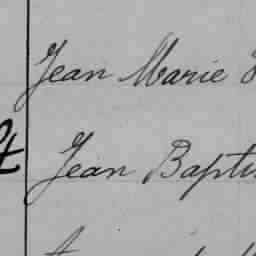 Jean Marie
Jean Baptis